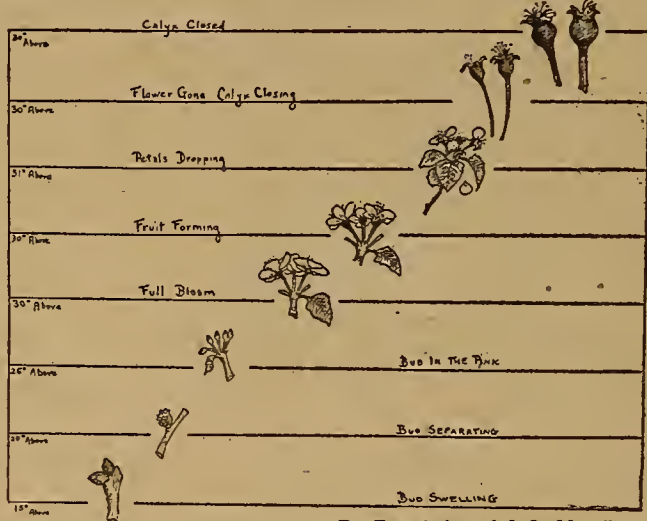 Calyx Closed
30° Above
Flower Gone Calyx Closing
30° Above
Petals Dropping
31° Above
Fruit Forming
30° Above
Full Bloom
30° Above
Bud In The Pink
25° Above
Bud Separating
20° Above
Bud Swelling
15° Above